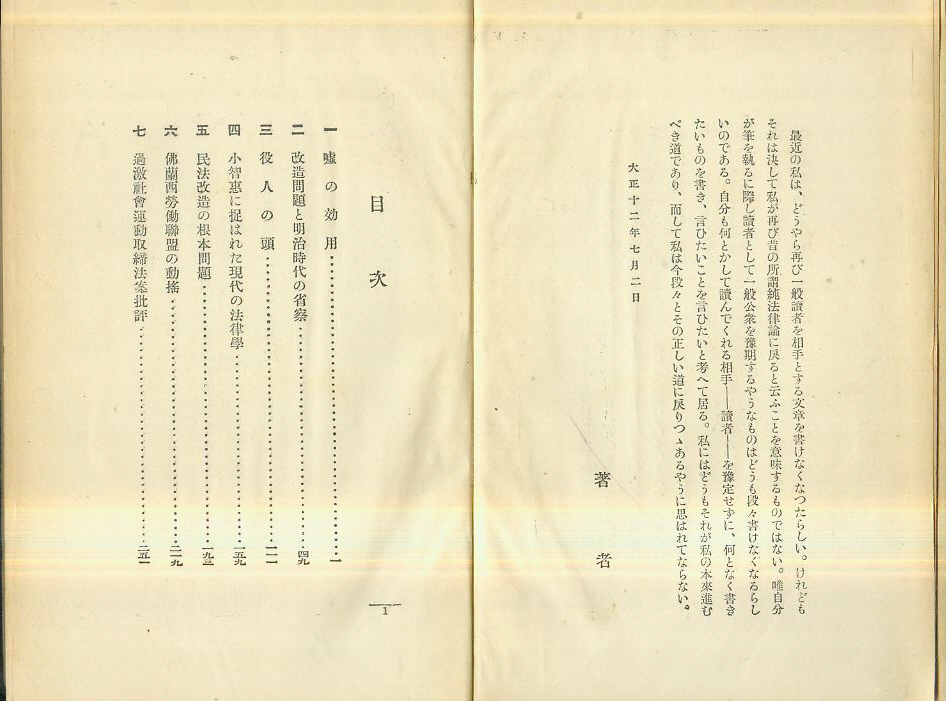 最近の私は、どうやら再び一般讀者を相手とする文章を書けなくなつたらしい。けれども
それは決して私が再び昔の所謂純法律論に戻ると云ふことを意味するものではない。唯自分
が筆を執るに際し讀者として一般公衆を豫期するやうなものはどうも段々書けなくなるらし
いのである。自分も何とかして讀んでくれる相手——讀者——を豫定せずに、何となく書き
たいものを書き、言ひたいことを言ひたいと考へて居る。私にはどうもそれが私の本來進む
べき道であり、而して私は今段々とその正しい道に戻りつゝあるやうに思はれてならない。
大正十二年七月二日
著者
目次
一 嘘の効用……一
二 改造問題と明治時代の省察……四九
三 役人の頭……一一一
四 小智惠に捉はれた現代の法律學……一五九
五 民法改造の根本問題……一九三
六 佛蘭西勞働聯盟の動搖……二一九
七 過激社會運動取締法案批評……二五一
1